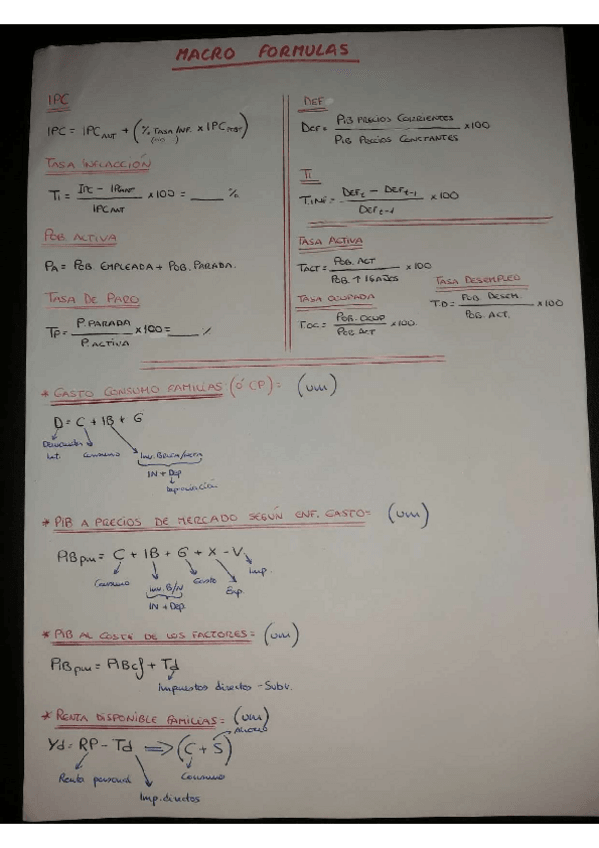 MACRO FORMULAS
IPC
IPC = IPC ANT + (% TASA INF. x IPC ANT)
TASA INFLACCIÓN
Ti = IPC - IPC ANT / IPC ANT x 100 = ____ %
POB. ACTIVA
PA = POB. EMPLEADA + POB. PARADA.
TASA DE PARO
TP = P. PARADA / P. ACTIVA x 100 = ____ %
DEF
DEF = PIB PRECIOS CORRIENTES / PIB PRECIOS CONSTANTES x 100
TI
T.INF = DEF t - DEF t-1 / DEF t-1 x 100
TASA ACTIVA
TACT = POB. ACT / POB. ↑ 16 AÑOS x 100
TASA OCUPADA
TOC = POB. OCUP / POB. ACT x 100
TASA DESEMPLEO
T.D = POB. DESEM. / POB. ACT. x 100
* GASTO CONSUMO FAMILIAS (Ó CP) = (um)
D = C + IB + G
Demanda
Int.
Consumo
IN + Dep
* PIB A PRECIOS DE MERCADO SEGÚN ENF. GASTO = (um)
PIBpm = C + IB + G + X - V
Consumo
Inv. B/N
IN + Dep.
Gasto
Exp.
Imp.
* PIB AL COSTE DE LOS FACTORES = (um)
PIBpm = PIBcf + Td
Impuestos directos - Subv.
* RENTA DISPONIBLE FAMILIAS = (um)
Yd = RP - Td ⟹ (C + S)
Ahorro
Renta personal
Consumo
Imp. directos